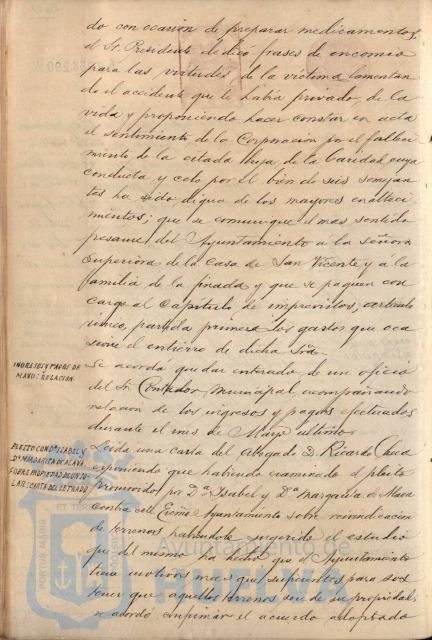 do con ocasión de preparar medicamentos,
el Sr. Presidente dedicó frases de encomio
para las virtudes de la víctima lamentan
do el accidente que le había privado de la
vida y proponiendo hacer constar en acta
el sentimiento de la Corporación por el falleci
miento de la citada Hija de la Caridad cuya
conducta y celo por el bien de sus semejan
tes ha sido digna de los mayores enalteci
mientos; que se comunique el mas sentido
pesame del Ayuntamiento a la señora
Superiora de la Casa de San Vicente y a la
familia de la finada y que se paguen con
cargo al Capítulo de imprevistos, artículo
único, partida primera los gastos que oca
sione el entierro de dicha Sra.
INGRESOS Y PAGOS DE
MAYO: RELACION
Se acorda quedar enterado de un oficio
del Sr. Contador Municipal, acompañando
relación de los ingresos y pagos efectuados
durante el mes de Mayo último.
PLEITO CON Dª ISABEL Y
Dª MARGARITA DE ALAVA
SOBRE PROPIEDAD DE
CARTA DEL LETRADO
Leida una carta del Abogado D. Ricardo Checa
exponiendo que habiendo examinado el pleito
promovido por Dª Isabel y Dª Margarita de Alava
contra este Excmo. Ayuntamiento sobre reivindicación
de terrenos habiendole sugerido el estudio
que del mismo ha hecho que el Ayuntamiento
tiene motivos mas que suficientes para sos
tener que aquellos terrenos son de su propiedad;
se acordó confirmar el acuerdo adoptado
Ayuntamiento de
HUELVA
PORTUS MARIS ET TERRAE